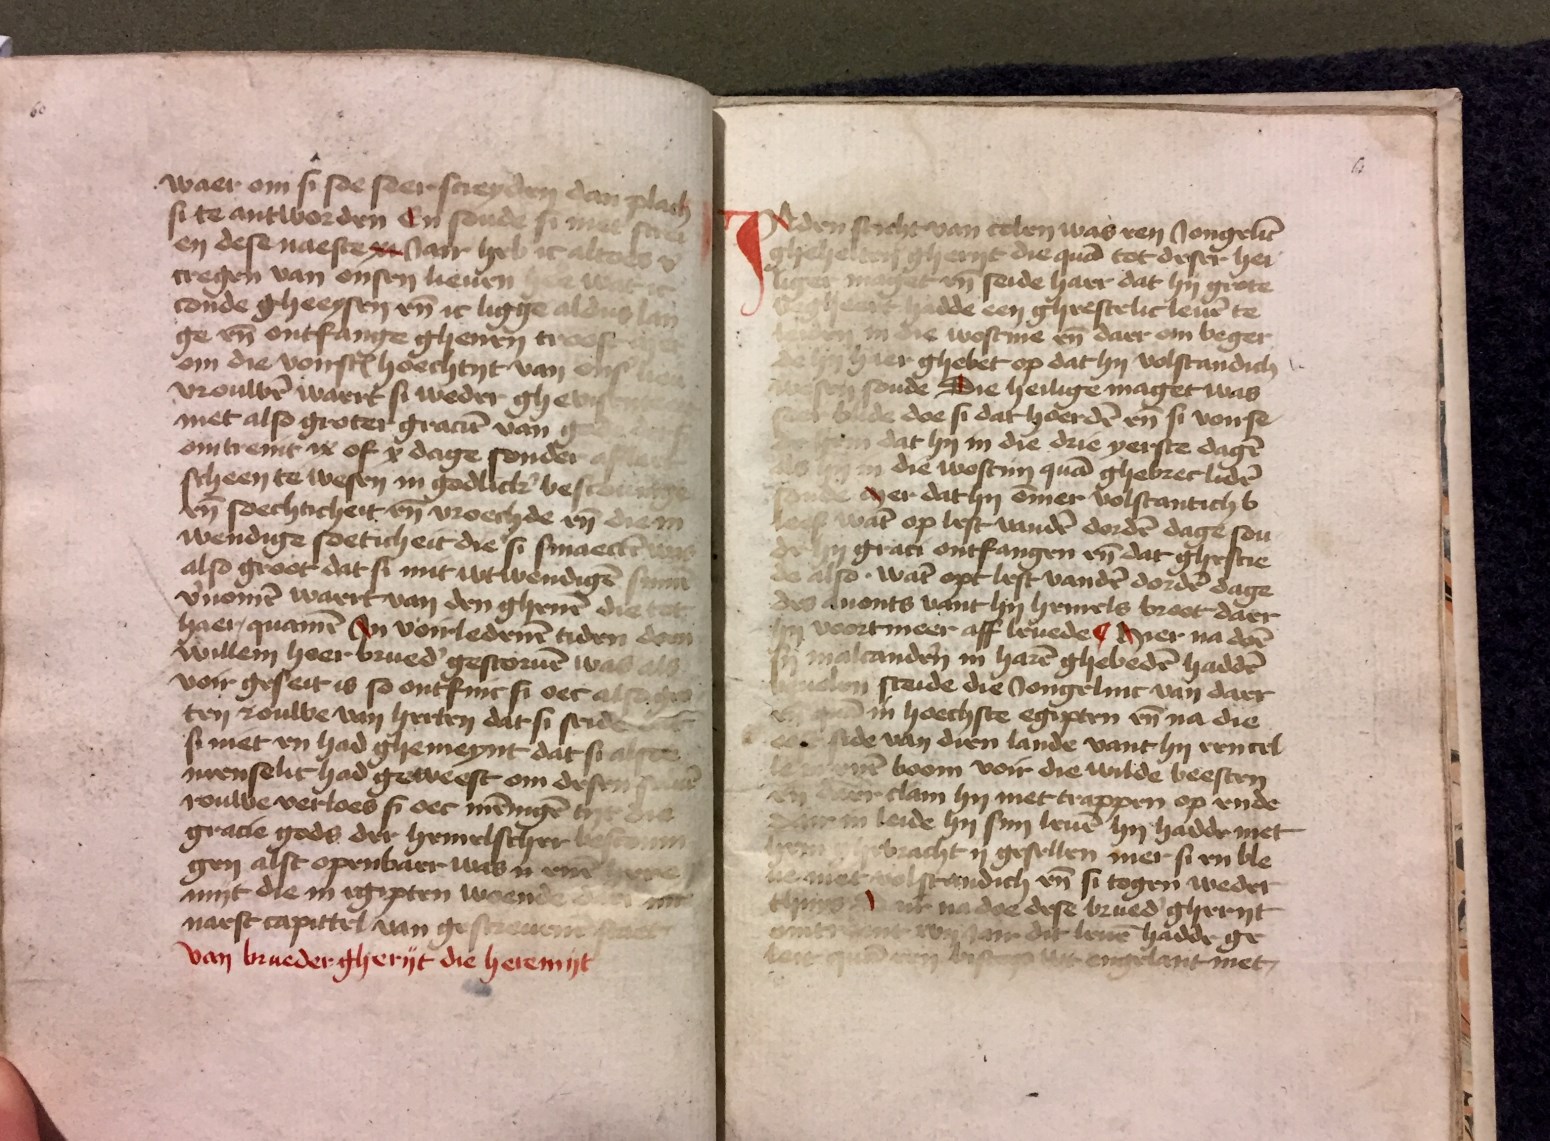 60
waer om si soe seer screyden dan plach
si te antworden En soude si niet screi
en dese naeste Jaer heb ic altoes v̄
cregen van onsen lieuen wat ic
conde gheeysen eñ ic ligge aldus lan
ge eñ ontfange ghenen troest
om die hoechtijt van ons lieu
vrouwē waert si weder ghe
met also groter graciē van
omtrent ix of x dage sonder
scheen te wesen in godlick bescouinge
eñ soechticheit eñ vroechde eñ die in
wendige soeticheit die si smaectē was
also groot dat si mit wtwendigē sinnē
v'nomē waert van den ghenē die tot
haer quamē In voirledenē tiden doen
willem heer brued' gestoruē was als
voir geseit is so ontfinc si oec also gro
ten rouwe van herten dat si seide
si niet en had ghemeynt dat si alsoe
menselic had geweest om desen
rouwe verloes si oec mēnigē tijt die
gracie gods der hemelscher bescouwin
gen alst openbaer was
mijt die in egipten woende
naest capittel van gescreuen staet
van brueder gherijt die heremijt
61
In den sticht van colen was een Jongelic
ghehieten gherijt die quā tot deser hei
liger maget eñ seide haer dat hij grote
hadde een gheestelic leuē te
leiden in die wostine eñ daer om beger
de hij haer ghebet op dat hij volstandich
wesen soude Die heilige maget was
seer blide doe si dat hoerdē eñ si
dat hij in die drie yerste dagē
als hij in die wostijn quā ghebrec lidē
soude Mer dat hij ōmer volstantich b
leef wāt op lest vandē dordē dage sou
de hij graci ontfangen eñ dat ghescie
de also. wāt opt lest vandē dordē dage
des auonts vant hij hemels broot daer
hij voortmeer aff leuede Hier na doē
si malcanderē in harē ghebedē haddē
beuolen sceide die Jongelinc van daer
eñ quā in hoechste egipten eñ na die
side van dien lande vant hij een cel
boom voir die wilde beesten
en daer clam hij met trappen op ende
daer in leide hij sijn leuē hij hadde met
hem ghebracht ij gesellen mer si en ble
uen niet volstandich eñ si togen weder
thuys na doe dese brued' gherijt
omtrent Jair dit leuē hadde ge
leit quā een biscop wt engelant met